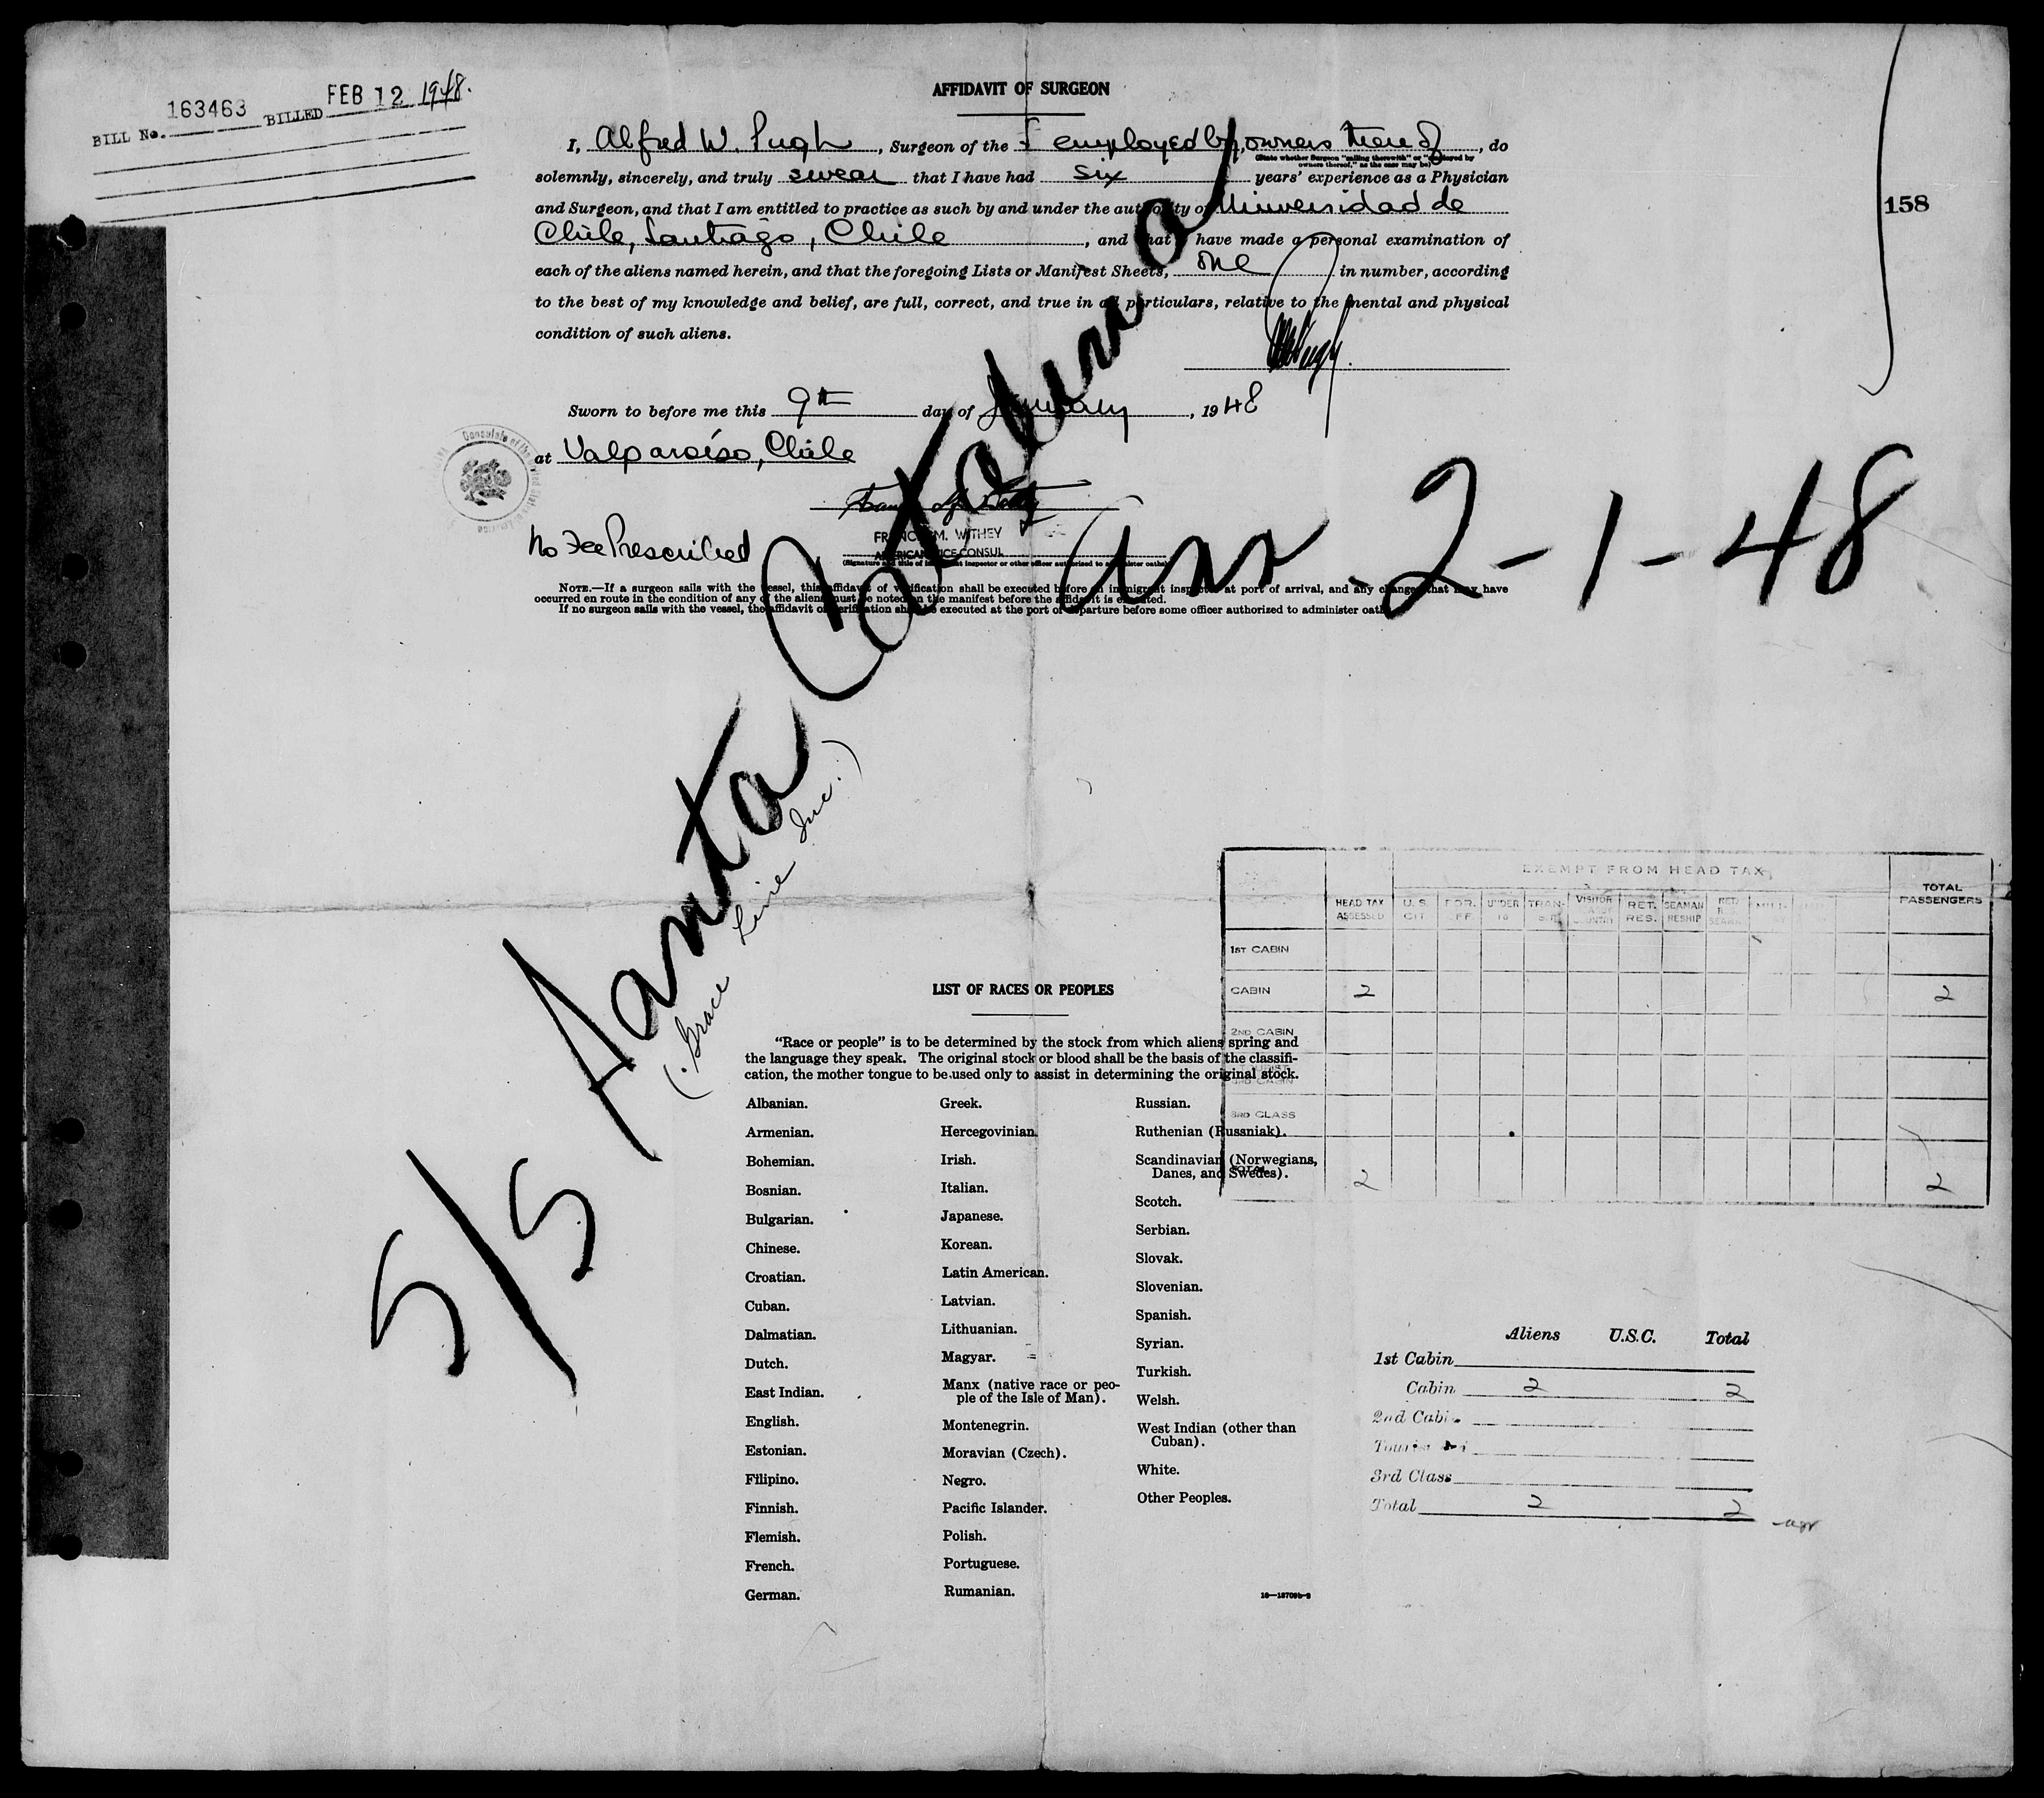 BILL No. 163463 BILLED FEB 12 1948.
AFFIDAVIT OF SURGEON
I, Alfred W. Pugh, Surgeon of the employed by owners thereof, do
(State whether Surgeon "sailing therewith" or "employed by
owners thereof," as the case may be)
solemnly, sincerely, and truly swear that I have had six years' experience as a Physician
and Surgeon, and that I am entitled to practice as such by and under the authority of Universidad de
Chile, Santiago, Chile, and that I have made a personal examination of
each of the aliens named herein, and that the foregoing Lists or Manifest Sheets, one in number, according
to the best of my knowledge and belief, are full, correct, and true in all particulars, relative to the mental and physical
condition of such aliens.
158
Sworn to before me this 9th day of January, 1948
at Valparaíso, Chile
Consulate of the United States of America
No Fee Prescribed
FRANCIS M. WITHEY
AMERICAN VICE CONSUL
(Signature and title of immigrant inspector or other officer authorized to administer oaths)
NOTE.—If a surgeon sails with the vessel, this affidavit of verification shall be executed before an immigrant inspector at port of arrival, and any changes that may have
occurred en route in the condition of any of the aliens must be noted on the manifest before the affidavit is executed.
If no surgeon sails with the vessel, the affidavit of verification shall be executed at the port of departure before some officer authorized to administer oaths.
S/S Santa Catalina
Arr. 2-1-48
(Grace Line Inc.)
EXEMPT FROM HEAD TAX
HEAD TAX ASSESSED U.S. CIT FOR. UNDER 16 TRAN- VISITOR COUNTRY RET. RES. SEAMAN RESHIP RET. TOTAL PASSENGERS
1ST CABIN
CABIN 2 2
2ND CABIN
3RD CABIN
3RD CLASS
TOTAL 2 2
LIST OF RACES OR PEOPLES
"Race or people" is to be determined by the stock from which aliens spring and
the language they speak. The original stock or blood shall be the basis of the classifi-
cation, the mother tongue to be used only to assist in determining the original stock.
Albanian.
Armenian.
Bohemian.
Bosnian.
Bulgarian.
Chinese.
Croatian.
Cuban.
Dalmatian.
Dutch.
East Indian.
English.
Estonian.
Filipino.
Finnish.
Flemish.
French.
German.
Greek.
Hercegovinian.
Irish.
Italian.
Japanese.
Korean.
Latin American.
Latvian.
Lithuanian.
Magyar.
Manx (native race or peo-
ple of the Isle of Man).
Montenegrin.
Moravian (Czech).
Negro.
Pacific Islander.
Polish.
Portuguese.
Rumanian.
Russian.
Ruthenian (Russniak).
Scandinavian (Norwegians,
Danes, and Swedes).
Scotch.
Serbian.
Slovak.
Slovenian.
Spanish.
Syrian.
Turkish.
Welsh.
West Indian (other than
Cuban).
White.
Other Peoples.
16—18709b-2
Aliens U.S.C. Total
1st Cabin
Cabin 2 2
2nd Cabin
3rd Class
Total 2 2